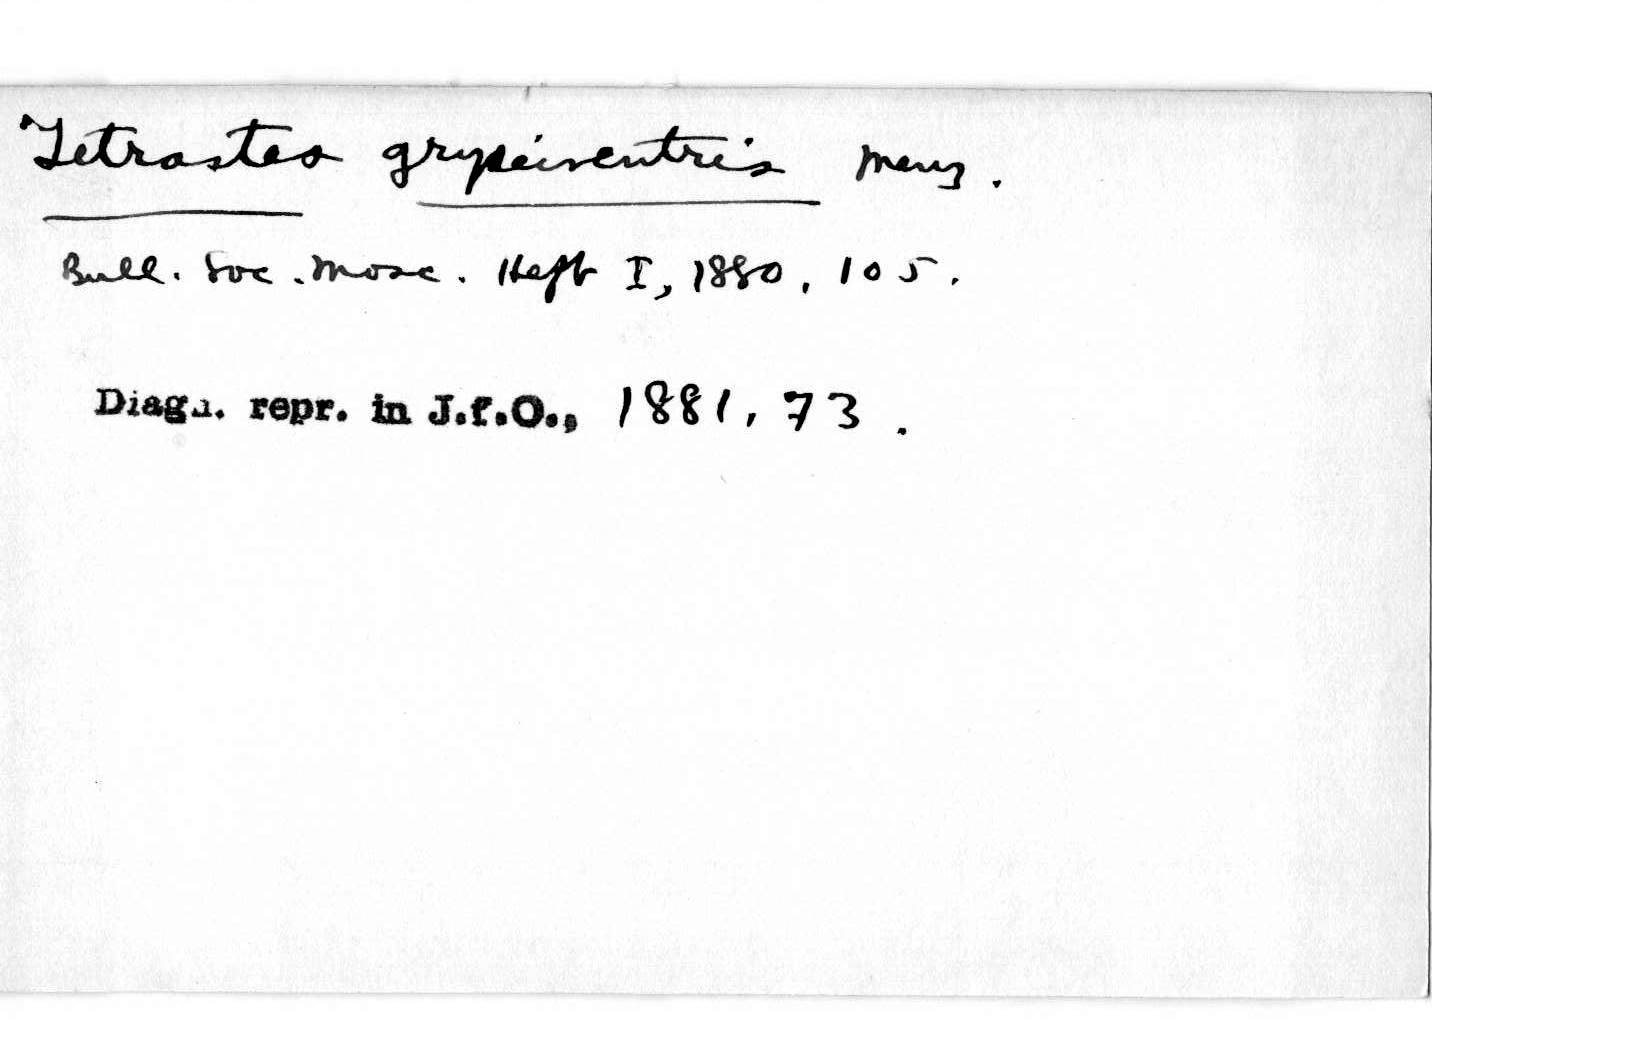 Tetrastes grypeiventris Menz.
Bull. Soc. Mosc. Heft I, 1880, 105.
Diagn. repr. in J.f.O., 1881, 73.